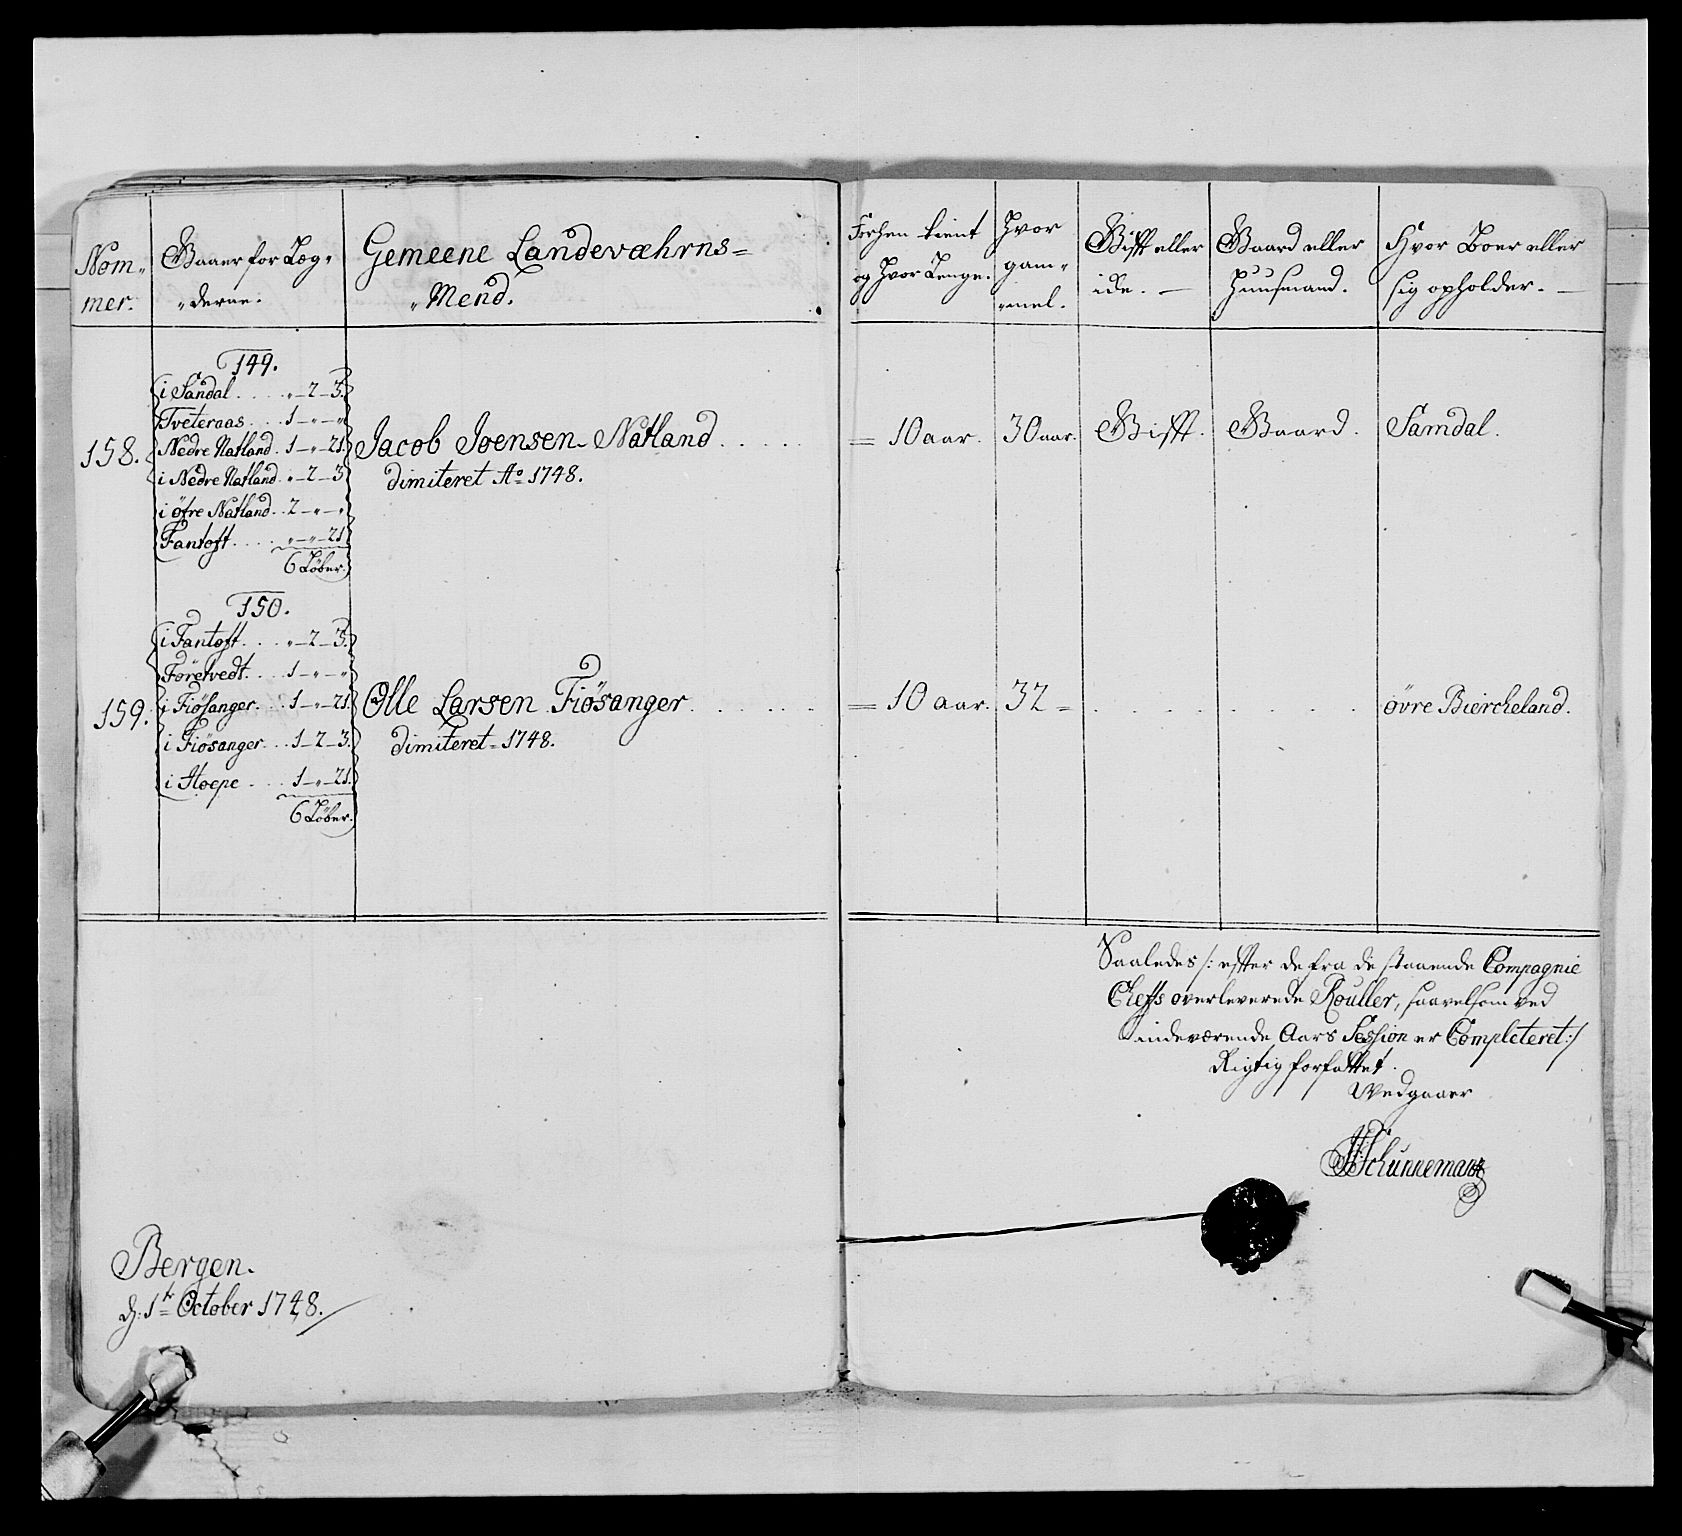 Nom-
mer.
Gaaer for Læg-
derne.
Gemeene Landevæhrns=
Mend.
Forhen tient
og Hvor Lenge.
Hvor
gam-
mel.
Gifft eller
ide. —
Gaard eller
Huusmand.
Hvor Boer eller
sig opholder. —
149.
158.
i Sandal . . . . " — 2 — 3.
Tveteraas . . . 1 — " — "
Nedre Natland . 1 — " — 21.
i Nedre Natland . " — 2 — 3
i öfre Natland . . 2 — " — "
Fantoft . . . . " — " — 21
6 Løber.
Jacob Joensen Natland . . . . .
dimiteret Ao 1748.
= 10 aar.
30 aar.
Gifft.
Gaard.
Samdal.
150.
159.
i Fantoft . . . . " — 2 — 3.
Företvedt . . . 1 — " — "
i Fiösanger . . 1 — " — 21.
i Fiösanger . . . 1 — 2 — 3.
i Hoepe . . . . 1 — " — 21.
6 Løber.
Olle Larsen Fiösanger . . . . . .
dimiteret = 1748.
= 10 aar.
32 =
övre Biercheland.
Saaledes /: efter de fra de staaende Compagnie
Cheffs overleverede Rouller, saavelsom ved
indeværende Aars Session er Completeret :/
Rigtig forfattet.
Vedgaaer
Schünneman
Bergen.
d: 1te October 1748.